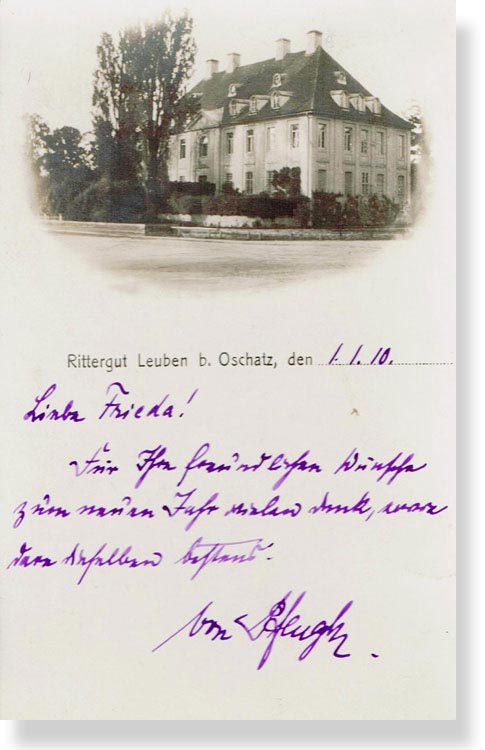 Rittergut Leuben b. Oschatz, den 1.1.10.
Liebe Frieda!
Für Ihre freundlichen Wünsche
zum neuen Jahr vielen Dank,
dieselben bestens.
von Pflugk.